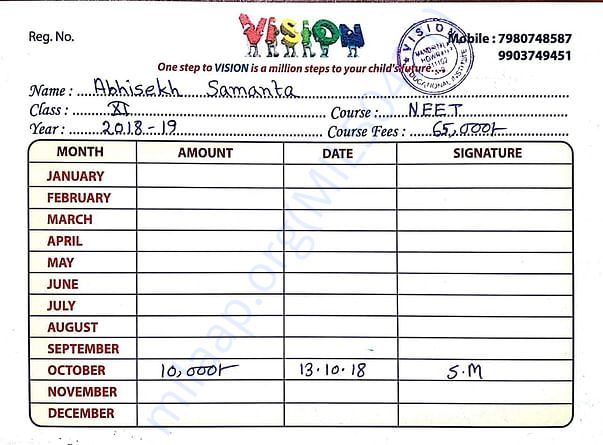 Reg. No.
VISION
Mobile : 7980748587
9903749451
One step to VISION is a million steps to your child's future.
VISION
EDUCATIONAL INSTITUTE
Name : Abhisekh Samanta
Class : XI Course : NEET
Year : 2018-19 Course Fees : 65,000/-
MONTH AMOUNT DATE SIGNATURE
JANUARY
FEBRUARY
MARCH
APRIL
MAY
JUNE
JULY
AUGUST
SEPTEMBER
OCTOBER 10,000/- 13.10.18 S.M
NOVEMBER
DECEMBER